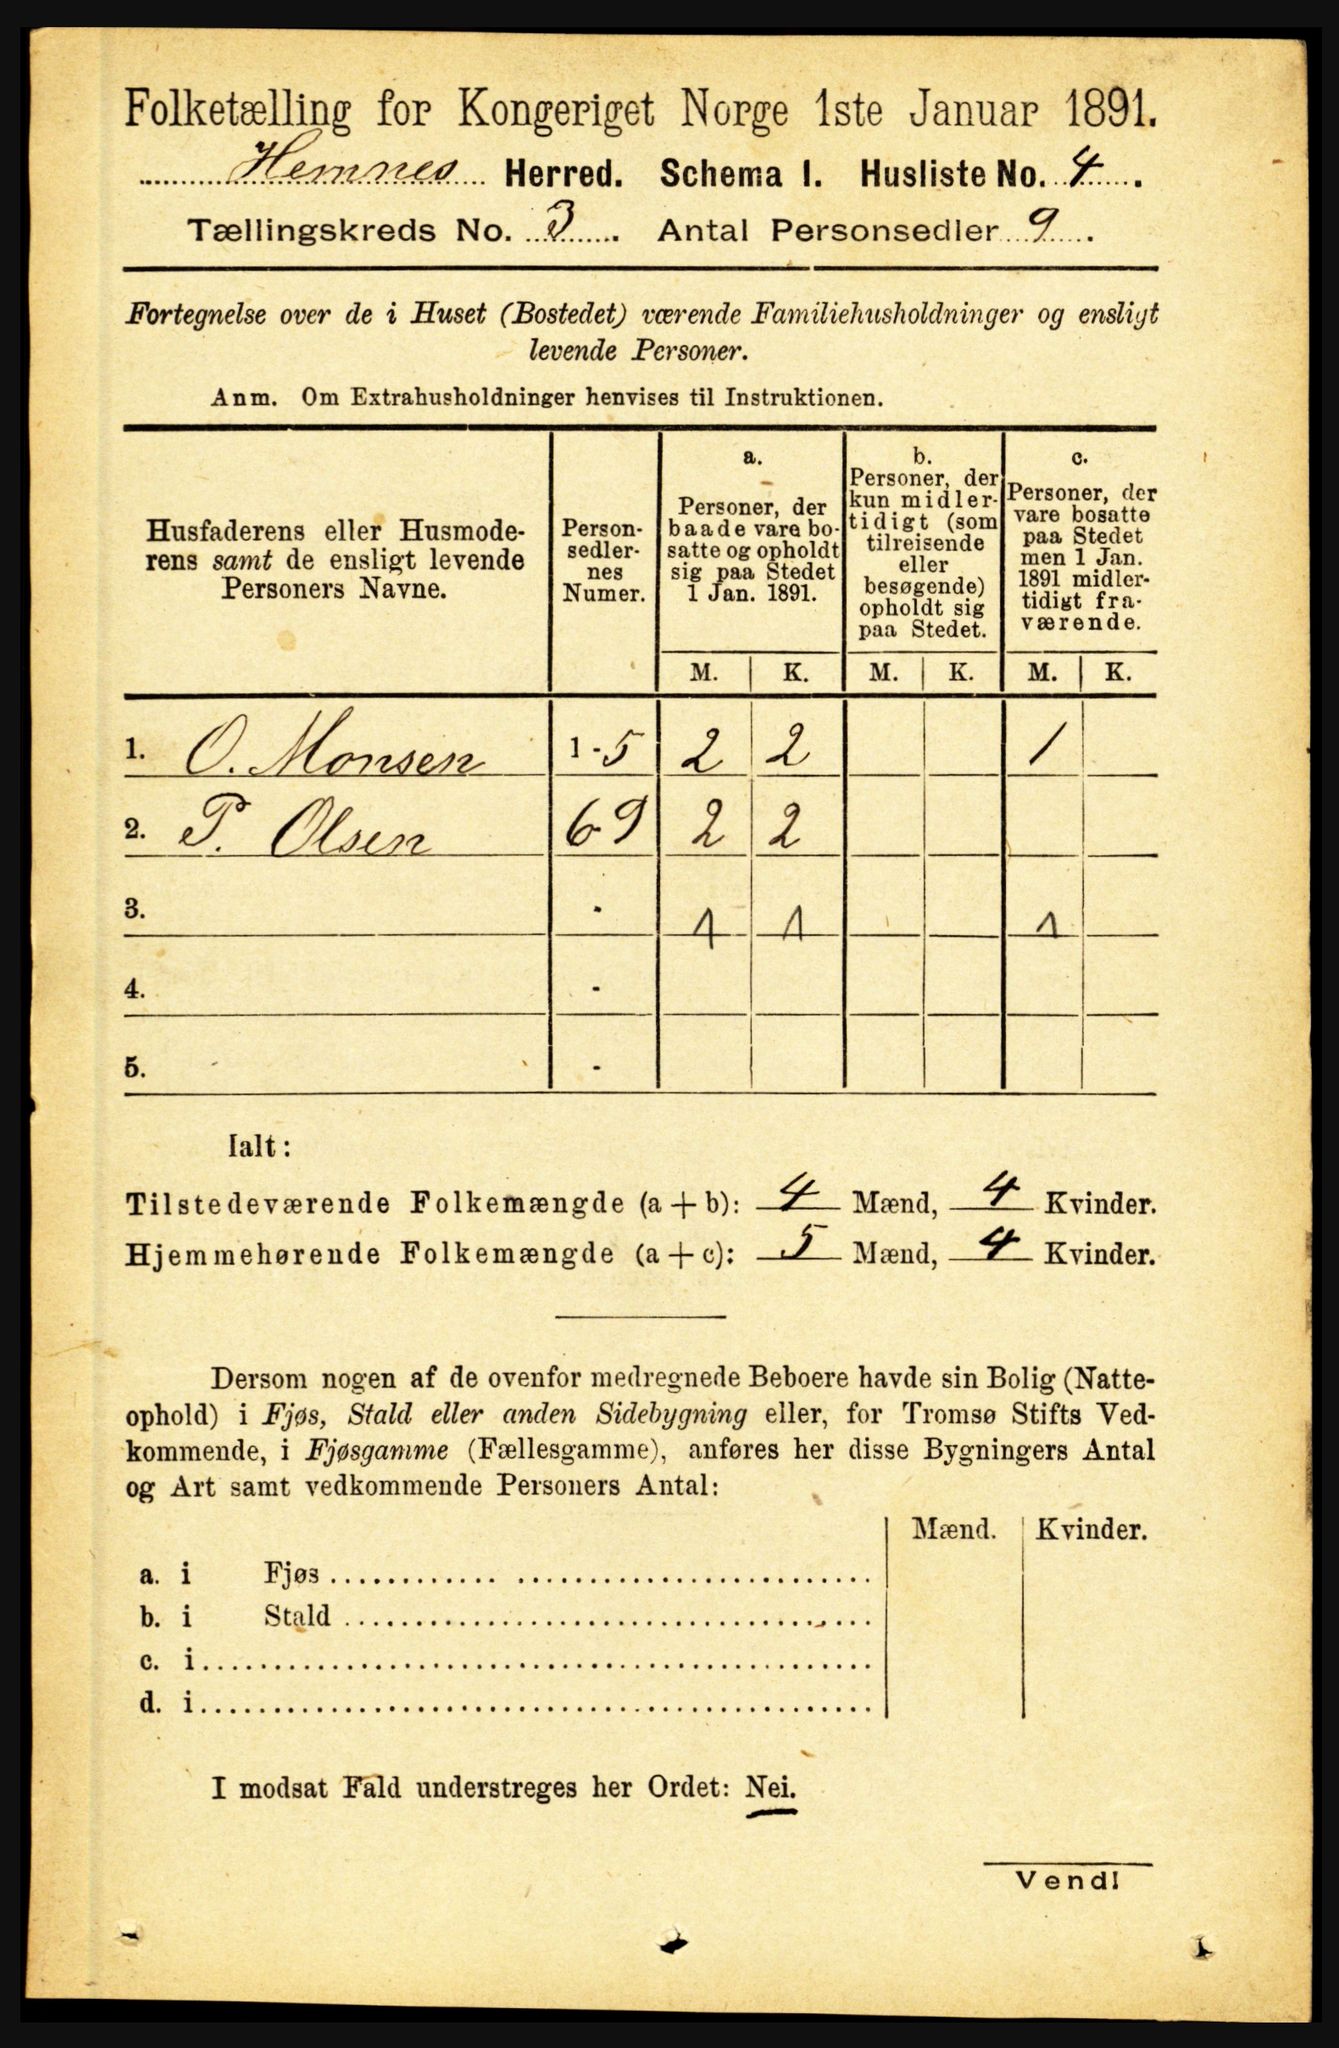 Folketælling for Kongeriget Norge 1ste Januar 1891.
Hemnes Herred. Schema I. Husliste No. 4.
Tællingskreds No. 3. Antal Personsedler 9.
Fortegnelse over de i Huset (Bostedet) værende Familiehusholdninger og ensligt
levende Personer.
Anm. Om Extrahusholdninger henvises til Instruktionen.
Husfaderens eller Husmode-
rens samt de ensligt levende
Personers Navne.
Person-
sedler-
nes
Numer.
a.
Personer, der
baade vare bo-
satte og opholdt
sig paa Stedet
1 Jan. 1891.
b.
Personer, der
kun midler-
tidigt (som
tilreisende
eller
besøgende)
opholdt sig
paa Stedet.
c.
Personer, der
vare bosatte
paa Stedet
men 1 Jan.
1891 midler-
tidigt fra-
værende.
M. K. M. K. M. K.
1. O. Monsen 1-5 2 2 1
2. P. Olsen 6-9 2 2
3. - 4 4 1
4. -
5. -
Ialt:
Tilstedeværende Folkemængde (a + b): 4 Mænd, 4 Kvinder.
Hjemmehørende Folkemængde (a + c): 5 Mænd, 4 Kvinder.
Dersom nogen af de ovenfor medregnede Beboere havde sin Bolig (Natte-
ophold) i Fjøs, Stald eller anden Sidebygning eller, for Tromsø Stifts Ved-
kommende, i Fjøsgamme (Fællesgamme), anføres her disse Bygningers Antal
og Art samt vedkommende Personers Antal:
Mænd. Kvinder.
a. i Fjøs
b. i Stald
c. i
d. i
I modsat Fald understreges her Ordet: Nei.
Vend!